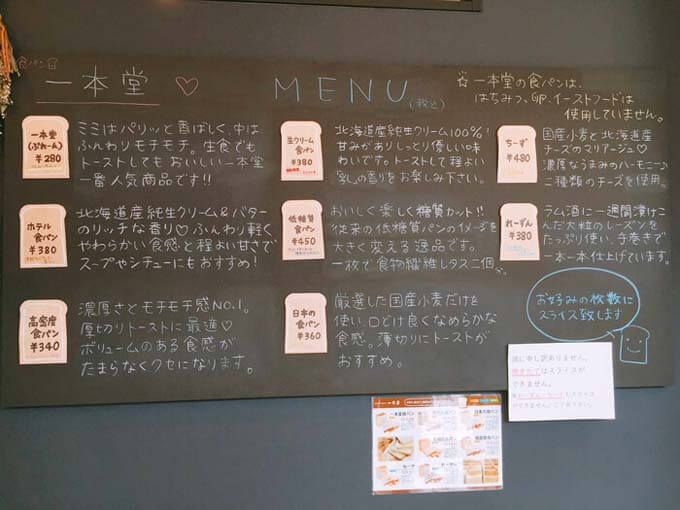 食パン
一本堂 ♡
MENU (税込)
☆一本堂の食パンは、
はちみつ、卵、イーストフードは
使用していません。
一本堂
(ぷれーん)
¥280
ミミはパリッと香ばしく、中は
ふんわりモチモチ。生食でも
トーストしてもおいしい一本堂
一番人気商品です!!
生クリーム
食パン
¥380
北海道産純生クリーム100%!
甘みがありしっとり優しい味
わいです。トーストして程よい
乳の香りをお楽しみ下さい。
ちーず
¥480
国産小麦と北海道産
チーズのマリアージュ♡
濃厚なうまみのハーモニー♪
二種類のチーズを使用。
ホテル
食パン
¥380
北海道産純生クリーム&バター
のリッチな香り♡ふんわり軽く
やわらかい食感と程よい甘さで
スープやシチューにもおすすめ!
低糖質
食パン
¥450
おいしく楽しく糖質カット!!
従来の低糖質パンのイメージを
大きく変える逸品です。
一枚で食物繊維レタス二個
れーずん
¥380
ラム酒に一週間漬けこ
んだ大粒のレーズンを
たっぷり使い、手巻きで
一本一本仕上げています。
高密度
食パン
¥340
濃厚さとモチモチ感NO.1。
厚切りトーストに最適♡
ボリュームのある食感が
たまらなくクセになります。
日本の
食パン
¥360
厳選した国産小麦だけを
使い、口どけ良くなめらかな
食感。薄切りにトーストが
おすすめ。
お好みの枚数に
スライス致します
誠に申し訳ありません。
焼きたてはスライスが
できません。